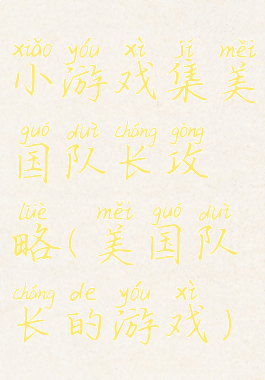 xiǎo yóu xì jí měi
小游戏集美
guó duì cháng gōng
国队长攻
lüè měi guó duì
略(美国队
cháng de yóu xì
长的游戏)